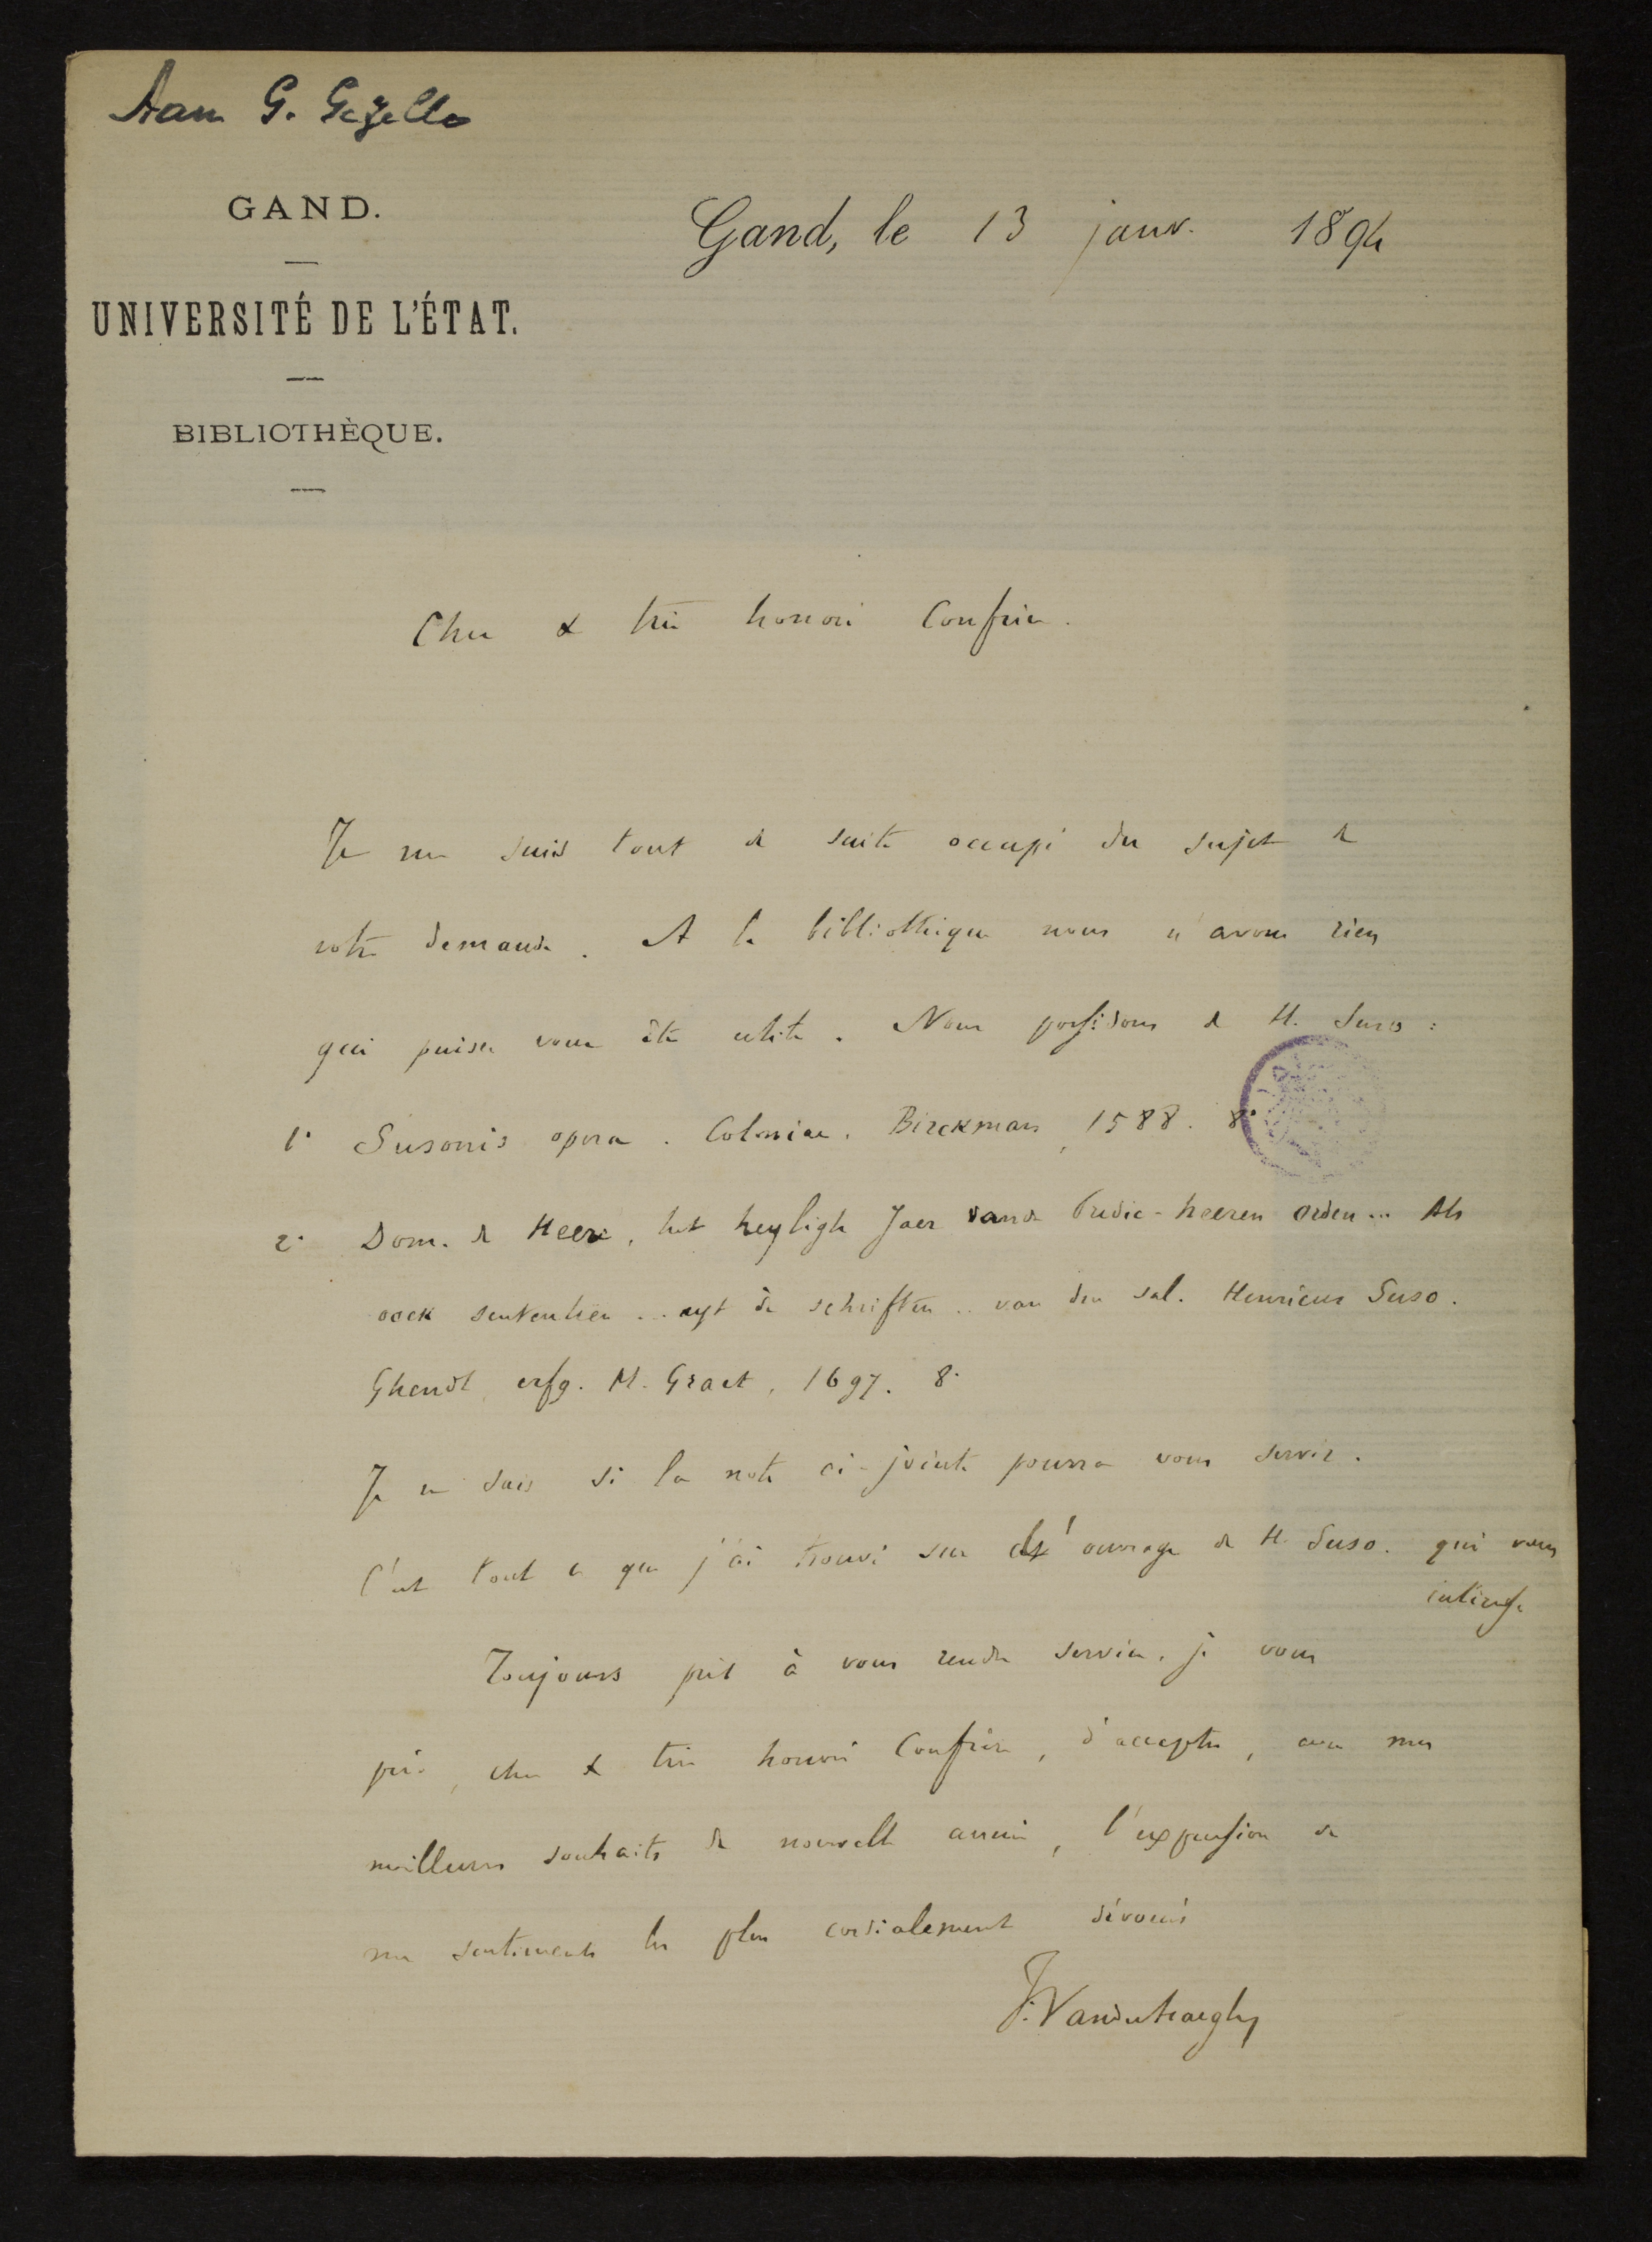 Aan G. Gezelle
GAND.
UNIVERSITÉ DE L'ÉTAT.
BIBLIOTHÈQUE.
Gand, le 13 janv. 1894
Cher & très honoré Confrère.
Je me suis tout de suite occupé du sujet de
votre demande. A la bibliothèque nous n'avons rien
qui puisse vous être utile. Nous possédons de H. Suso :
1° Susonis opera. Coloniae. Birckman, 1588. 8°
2° Dom. de Heere, het heyligh Jaer vande Predic-heeren orden... Als
oock sententien... uyt de schriften .. van den sal. Henricus Suso.
Ghendt, erfg. M. Graet, 1697. 8°
Je ne sais si la note ci-jointe pourra vous servir.
C'est tout ce que j'ai trouvé sur l'ouvrage de H. Suso. qui vous
intéresse
Toujours prêt à vous rendre service, je vous
prie, cher & très honoré Confrère, d'accepter, avec mes
meilleurs souhaits de nouvelle année, l'expression de
mes sentiments les plus cordialement dévoués
F. Vanderhaeghen